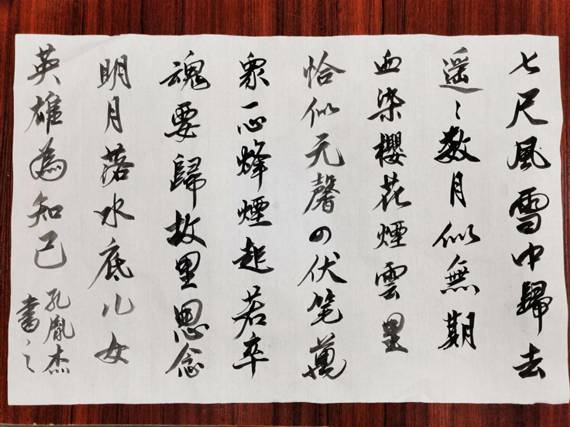 七尺風雪中歸去
遥〻数月似無期
血染櫻花煙雲里
恰似无馨の伏笔萬
衆心烽煙起若卒
魂要歸故里思念
明月落水底儿女
英雄為知己
孔胤杰
書之